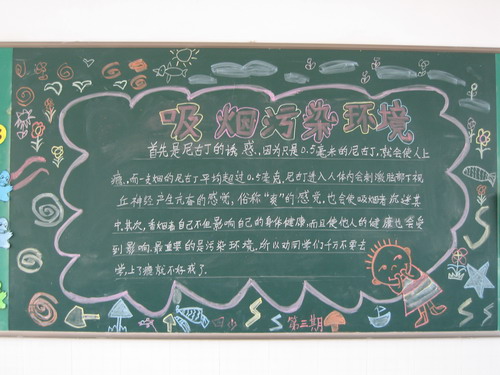 吸烟污染环境
首先是尼古丁的诱惑,因为只是0.5毫米的尼古丁,就会使人上
瘾,而一支烟的尼古丁平均超过0.5毫克,尼古丁进入人体内会刺激
丘神经产生亢奋的感觉,俗称“爽”的感觉,也会使吸烟者沉迷其
中,其次,看烟者自己不但影响自己的身体健康,而且使他人的健康也会受
到影响,最重要的是污染环境,所以劝同学们千万不要去
学,上了瘾就不好戒了.
第三期